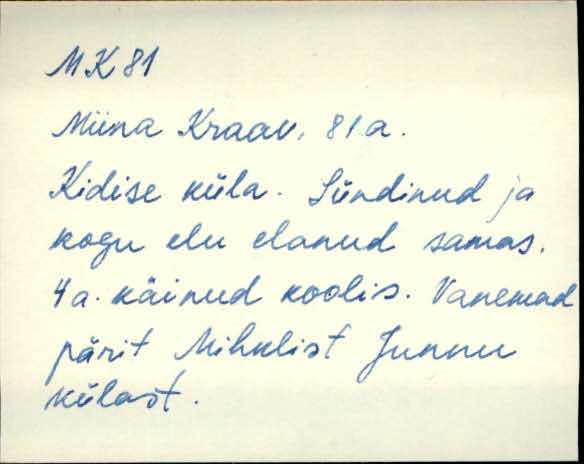 MK 81
Miina Kraav, 81 a.
Kidise küla. Sündinud ja
kogu elu elanud samas.
4 a. käinud koolis. Vanemad
pärit Mihklist Junnu
külast.